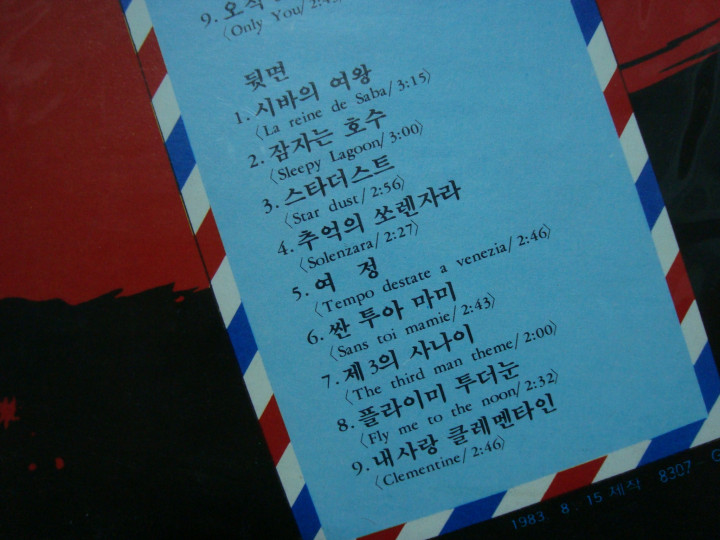 9. 오직
〈Only You/ 2:4
뒷면
1. 시바의 여왕
〈La reine de Saba/ 3:15〉
2. 잠자는 호수
〈Sleepy Lagoon/ 3:00〉
3. 스타더스트
〈Star dust/ 2:56〉
4. 추억의 쏘렌자라
〈Solenzara/ 2:27〉
5. 여 정
〈Tempo destate a venezia/ 2:46〉
6. 싼 투아 마미
〈Sans toi mamie/ 2:43〉
7. 제 3의 사나이
〈The third man theme/ 2:00〉
8. 플라이미 투더눈
〈Fly me to the noon/ 2:32〉
9. 내사랑 클레멘타인
〈Clementine/ 2:46〉
1983. 8. 15 제작 8307- G